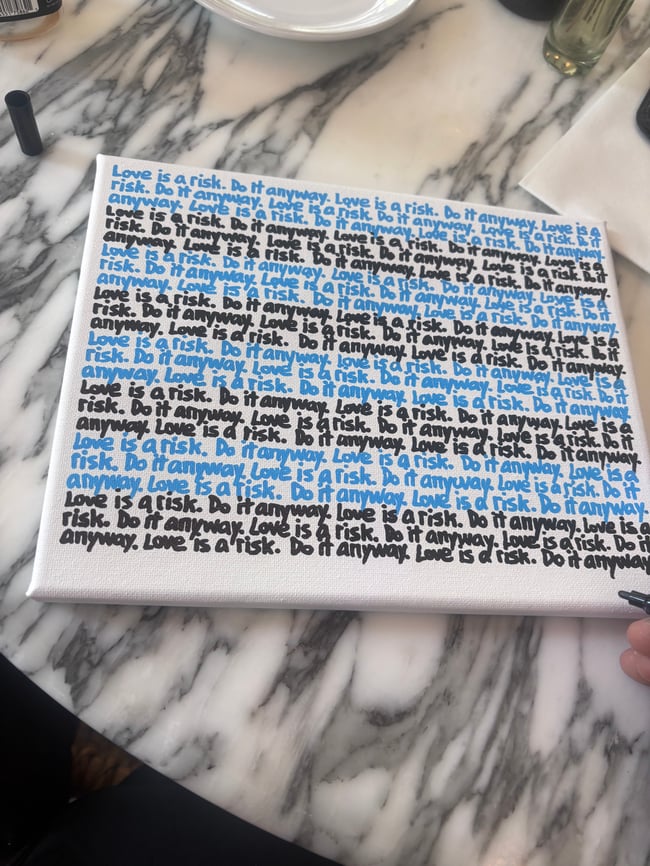 Love is a risk. Do it anyway. Love is a risk. Do it anyway. Love is a
risk. Do it anyway. Love is a risk. Do it anyway. Love is a risk. Do it
anyway. Love is a risk. Do it anyway. Love is a risk. Do it anyway.
Love is a risk. Do it anyway. Love is a risk. Do it anyway. Love is a
risk. Do it anyway. Love is a risk. Do it anyway. Love is a risk. Do it
anyway. Love is a risk. Do it anyway. Love is a risk. Do it anyway.
Love is a risk. Do it anyway. Love is a risk. Do it anyway. Love is a
risk. Do it anyway. Love is a risk. Do it anyway. Love is a risk. Do it
anyway. Love is a risk. Do it anyway. Love is a risk. Do it anyway.
Love is a risk. Do it anyway. Love is a risk. Do it anyway. Love is a
risk. Do it anyway. Love is a risk. Do it anyway. Love is a risk. Do it
anyway. Love is a risk. Do it anyway. Love is a risk. Do it anyway.
Love is a risk. Do it anyway. Love is a risk. Do it anyway. Love is a
risk. Do it anyway. Love is a risk. Do it anyway. Love is a risk. Do it
anyway. Love is a risk. Do it anyway. Love is a risk. Do it anyway.
Love is a risk. Do it anyway. Love is a risk. Do it anyway. Love is a
risk. Do it anyway. Love is a risk. Do it anyway. Love is a risk. Do it
anyway. Love is a risk. Do it anyway. Love is a risk. Do it anyway.
Love is a risk. Do it anyway. Love is a risk. Do it anyway. Love is a
risk. Do it anyway. Love is a risk. Do it anyway. Love is a risk. Do it
anyway. Love is a risk. Do it anyway. Love is a risk. Do it anyway.
Love is a risk. Do it anyway. Love is a risk. Do it anyway. Love is a
risk. Do it anyway. Love is a risk. Do it anyway. Love is a risk. Do it
anyway. Love is a risk. Do it anyway. Love is a risk. Do it anyway